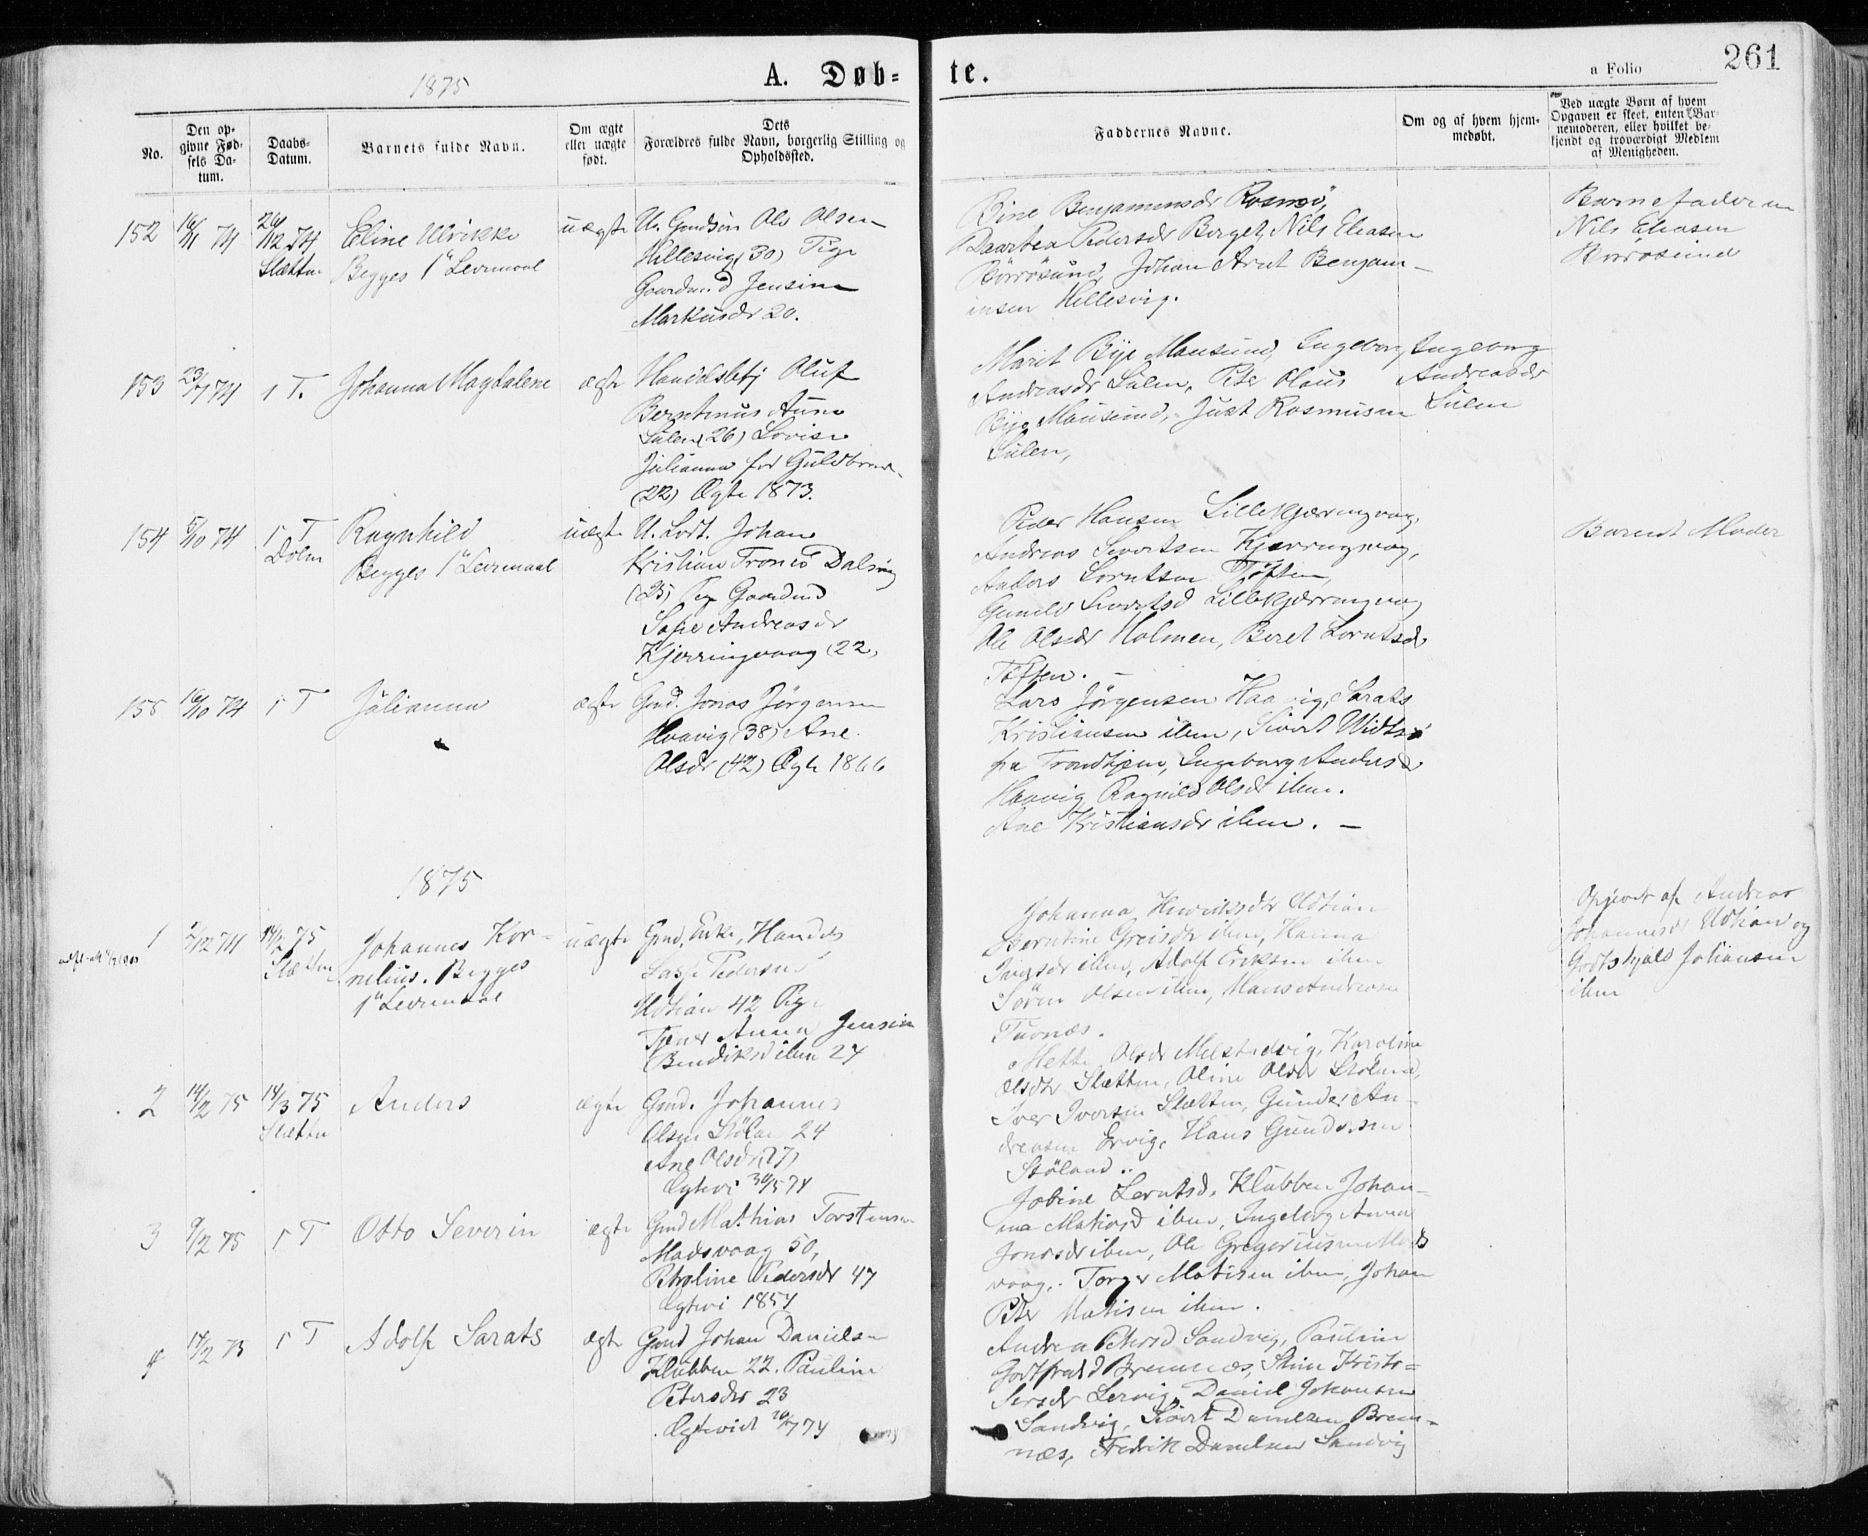 261
1875
A. Døb-
te.
a Folio
No.
Den op-
givne Fød-
sels Da-
tum.
Daabs-
Datum.
Barnets fulde Navn.
Om ægte
eller uægte
født.
Dets
Forældres fulde Navn, borgerlig Stilling og
Opholdssted.
Faddernes Navne.
Om og af hvem hjem-
medøbt.
Ved uægte Børn af hvem
Opgaven er skeet, enten Bar-
nemoderen, eller hvilket be-
kjendt og troværdigt Medlem
af Menigheden.
152
16/11 74
26/12 74
Slætten
Eline Ulrikke
Begges 1ste Leiermaal
uægte
U. Gmdsøn Ole Olsen
Hellesvig (30) Pige
Gaardmd Jensine
Markusdr 20.
Bine Benjaminsdr Rosmoi,
Pedersdr Berget, Nils Eliasen
Børrøsund, Johan Arnt Benjam-
insen Hellesvig.
Barnefaderen
Nils Eliasen
Børrøsund
153
23/7 74
i T.
Johanna Magdalene
ægte
Handelsbetj Oluf
Berntinus Aune
Sulen (26) Lovise
Julianna fød Guldbrand-
(22) Ægte 1873.
Marit Bye Mausund, Ingeborg
Andreasdr Sulen, Peter Olaus
Bye Mausund, Just Rasmusen
Sulen,
Ingeborg
Andreasdr
Sulen
154
5/10 74
i T
Dolm
Ragnhild
Begges 1ste Leiermaal
uægte
U. Lodt. Johan
Kristian Dalsing
(25) Pige Gaardmd
Sofie Andreasdr
Kjerringvaag (22)
Peder Hansen Lillekjærringvag,
Andreas Sivertsen Kjerringvag,
Anders Lorntsen Tøften,
Gunild Sivertsd Lillekjærringvag
Ole Olsdr Holmen, Beret Lorntsd.
Tøften. -
Barnets Moder
155
16/10 74
i T
Julianna
ægte
Gmd. Jonas Jørgensen
Haavig (38) Ane
Olsdr (42) Ægte 1866
Lars Jørgensen Haavig, Sarats
Kristiansen ibm, Sivert Widtsø
fra Trondhjem, Ingeborg Andersd
Haavig, Ragnild Olsdr ibm.
Ane Kristiansdr ibm. -
1875
1
2/12 74
14/2 75
Slætten
Johannes Kor-
nelius. Begges
1ste Leiermaal
uægte
Gmd, Enke, Handels
Lasse Pedersen
Udtian 42 Pige
Tjener Anna Jensine
Bendiksd ibm 27
Johanna Henriksdr Udtian
Berntine Greisdr ibm, Hanna
Iversdr ibm, Adolf Eriksen ibm
Søren Olsen ibm, Hans Andreasen
Tuvnæs.
Opgivet af Andreas
Johannesen Udtian og
Godtskjalk Johansen
ibm
2
14/2 75
14/3 75
Slætten
Anders
ægte
Gmd. Johannes
Olsen Stølan 24
Ane Olsdr (27)
Ægtevi 30/5 74
Mette Olsdr Melstedvig, Karoline
Olsdtr Slætten, Oline Olsdr Stöland,
Iver Iversen Slætten, Gunder An-
dreasen Ervig, Hans Gundersen
Stöland.
3
9/2 75
i T
Otto Severin
ægte
Gmd Mathias Torstensen
Madsvaag 50,
Petroline Pedersdr 47
Ægtevi 1854
Jobine Lerntsd. Klubben, Johan-
na Matisd ibm, Ingeborg Anna
Jonasdr ibm, Ole Gregoriusen Mads
vaag. Torger Matisen ibm, Johan
Peter Matisen ibm.
4
14/2 75
i T
Adolf Sarats
ægte
Gmd Johan Danielsen
Klubben 22. Pauline
Petersdr 23
Ægteviet 20/7 74
Andrea Petersd Sandvig, Pauline
Godtfredsd Bremnæs, Stine Kristo-
fersdr Lervig, Daniel Johansen
Sandvig, Sivert Danielsen Brem-
næs, Fredrik Danielsen Sandvig